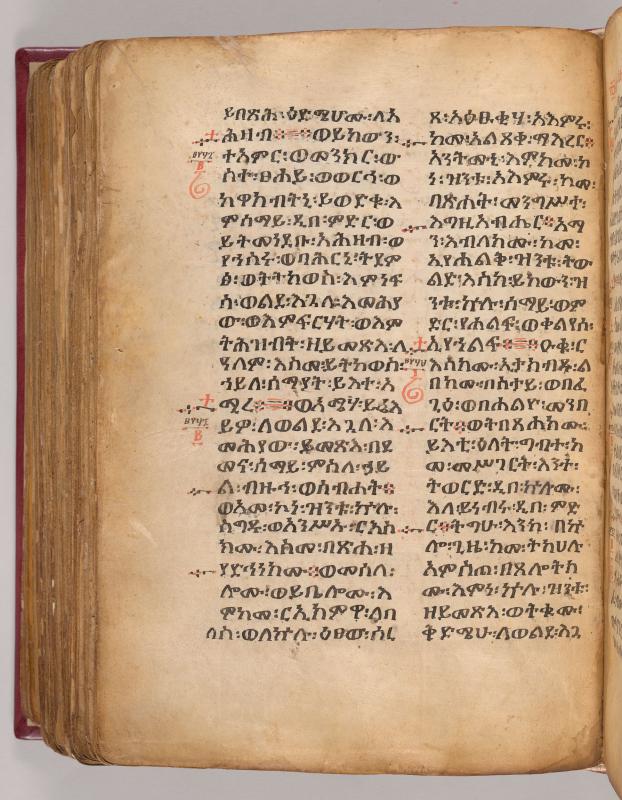 ይበጽሕ፡ዕድሜሆሙ፡ለአ
ሕዛብ፨ወይከውን፡
ተአምር፡ወመንክር፡ው
ስተ፡ፀሐይ፡ወወርኅ፡ወ
ከዋክብትኒ፡ይወድቁ፡እ
ምሰማይ፡ዲበ፡ምድር፡ወ
ይትመነደቡ፡አሕዛብ፡ወ
የኀስሩ፡ወባሕርኒ፡ትደም
ፅ፡ወትትከወስ፡እምነፍ
ሰ፡ወልደ፡እጓለ፡እመሕያ
ው፡ወእምፍርሃት፡ወእም
ትሕዝብት፡ዘይመጽእ፡ላ
ዓለም፡እስመ፡ይትከወስ፡
ኀይለ፡ሰማያት፡ይእተ፡አ
ሚረ፨ወእሜሃ፡ይሬእ
ይዎ፡ለወልደ፡እጓለ፡እ
መሕያው፡ይመጽእ፡በደ
መና፡ሰማይ፡ምስለ፡ኃይ
ል፡ብዙኅ፡ወስብሐት፨
ወእመ፡ኮነ፡ዝንቱ፡ኵሉ፡
ስግዱ፡ወአንሥኡ፡ርእስ
ክሙ፡እስመ፡በጽሐ፡ዘ
ያድኅነክሙ፨ወመሰለ፡
ሎሙ፡ወይቤሎሙ፡እ
ምከመ፡ርኢክምዋ፡ለበ
ለስ፡ወለኵሉ፡ዕፀው፡ሶበ
ጸ፡አዕፁቂሃ፡አእምሩ፡
ከመ፡አልጸቀ፡ማእረር፡
አንትሙኒ፡እምከመ፡ኮ
ነ፡ዝንቱ፡አእምሩ፡ከመ፡
በጽሐት፡መንግሥተ፡
እግዚአብሔር፨አማ
ን፡እብለክሙ፡ከመ፡
ኢየሐልቅ፡ዝንቱ፡ትው
ልድ፡እስከ፡ይከውን፡ዝ
ንቱ፡ኵሉ፡ሰማይ፡ወም
ድር፡የሐልፍ፡ወቃልየሰ፡
ኢየኀልፍ፨ዑቁ፡ር
እስክሙ፡ኢታክብዱ፡ል
በክሙ፡በስታይ፡ወበፈ
ጊዕ፡ወበሐልዮ፡መንበ
ርት፨ወትበጽሐክሙ፡
ይእቲ፡ዕለት፡ግብተ፡ከ
መ፡መሥገርት፡እንተ፡
ትወርድ፡ዲበ፡ኵሎሙ፡
እለ፡ይነብሩ፡ዲበ፡ምድ
ር፨ትግሁ፡እንከ፡በኵ
ሎ፡ጊዜ፡ከመ፡ትክሀሉ
አምስጦ፡በጸሎትክ
ሙ፡እምነ፡ኵሉ፡ዝንቱ፡
ዘይመጽእ፡ወትቁሙ፡
ቅድሜሁ፡ለወልደ፡እጓ